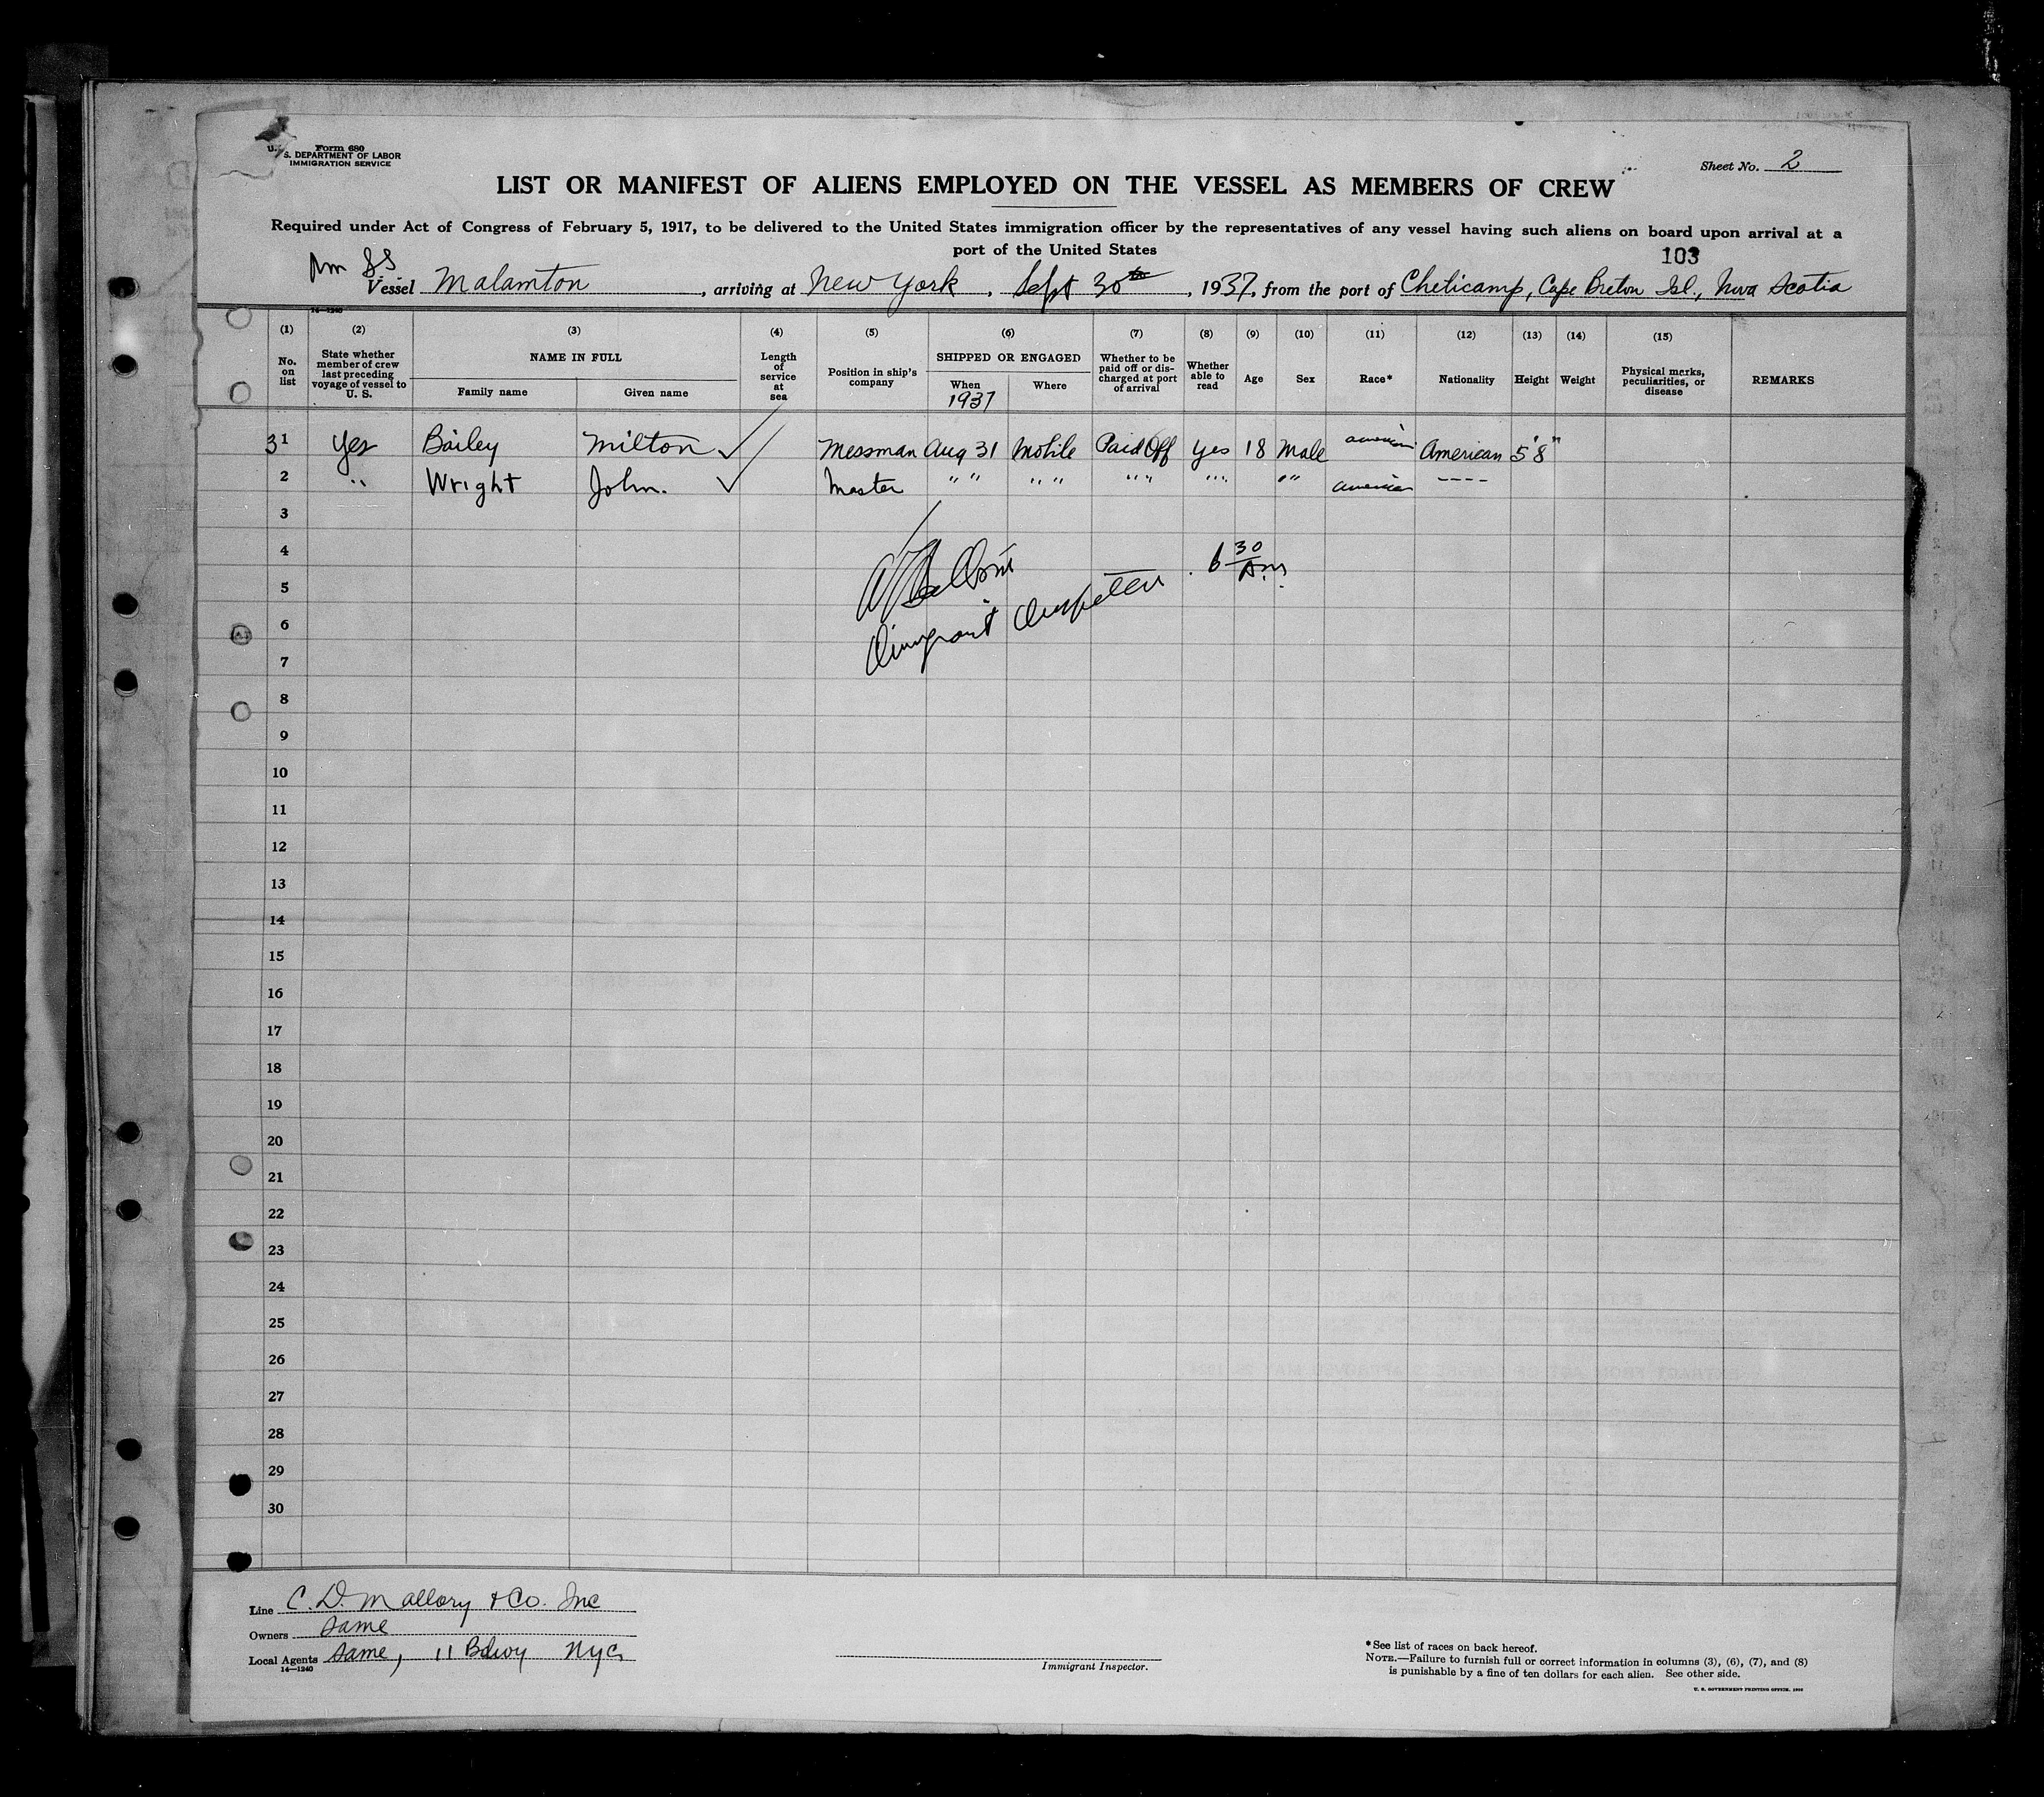 Form 680
U. S. DEPARTMENT OF LABOR
IMMIGRATION SERVICE
Sheet No. 2
LIST OR MANIFEST OF ALIENS EMPLOYED ON THE VESSEL AS MEMBERS OF CREW
Required under Act of Congress of February 5, 1917, to be delivered to the United States immigration officer by the representatives of any vessel having such aliens on board upon arrival at a
port of the United States
103
Am SS
Vessel Malamton, arriving at New York, Sept 30th, 1937, from the port of Cheticamp, Cape Breton Isl., Nova Scotia
14—1240
(1) (2) (3) (4) (5) (6) (7) (8) (9) (10) (11) (12) (13) (14) (15)
No. on list State whether member of crew last preceding voyage of vessel to U. S. NAME IN FULL Family name Given name Length of service at sea Position in ship's company SHIPPED OR ENGAGED When 1937 Where Whether to be paid off or discharged at port of arrival Whether able to read Age Sex Race* Nationality Height Weight Physical marks, peculiarities, or disease REMARKS
31 Yes Bailey Milton ✓ Messman Aug 31 Mobile Paid Off Yes 18 Male American American 5'8"
2 " Wright John. ✓ Master " " " " " " " " " " American ----
3
4
6 30 Am
5
6
Immigrant Inspector
7
8
9
10
11
12
13
14
15
16
17
18
19
20
21
22
23
24
25
26
27
28
29
30
Line C. D. Mallory & Co. Inc
Owners Same
Local Agents Same, 11 Bdwy NYC
14—1240
Immigrant Inspector.
*See list of races on back hereof.
NOTE.—Failure to furnish full or correct information in columns (3), (6), (7), and (8)
is punishable by a fine of ten dollars for each alien. See other side.